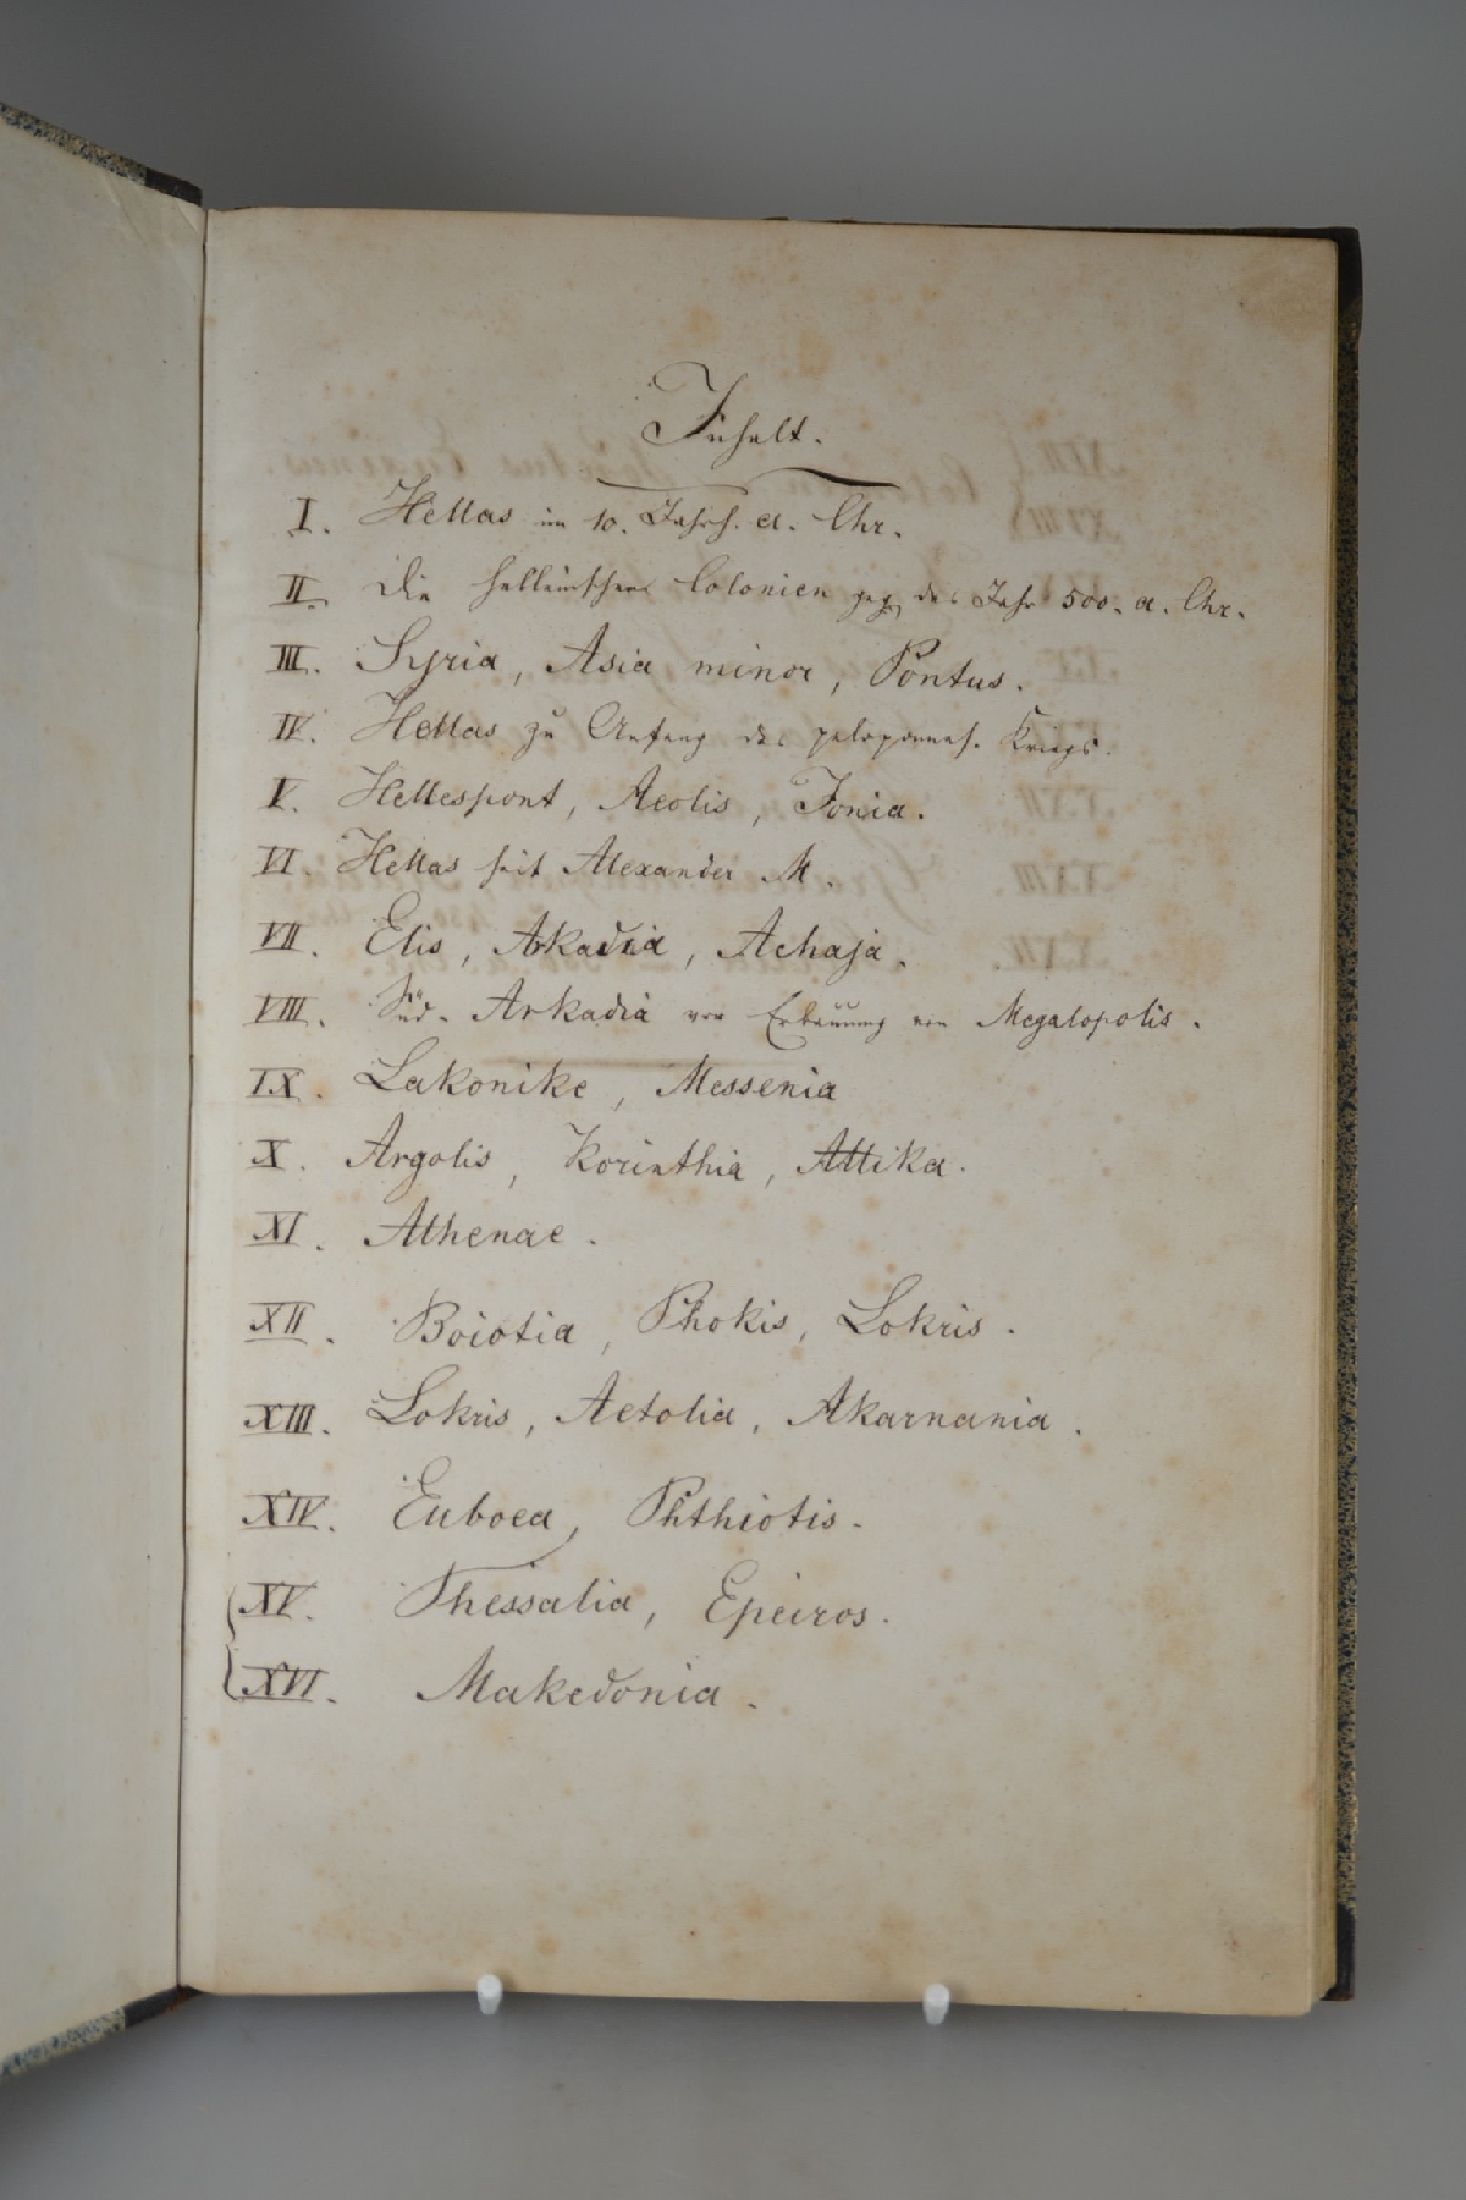 Inhalt.
I. Hellas im 10. Jahrh. a. Chr.
II. Die hellenischen Colonien geg. das Jahr 500. a. Chr.
III. Syria, Asia minor, Pontus.
IV. Hellas zu Anfang des peloponnes. Kriegs.
V. Hellespont, Aeolis, Ionia.
VI. Hellas seit Alexander M.
VII. Elis, Arkadia, Achaja.
VIII. Süd-Arkadia vor Erbauung von Megalopolis.
IX. Lakonike, Messenia
X. Argolis, Korinthia, Attika.
XI. Athenae.
XII. Boiotia, Phokis, Lokris.
XIII. Lokris, Aetolia, Akarnania.
XIV. Euboea, Phthiotis.
XV. Thessalia, Epeiros.
XVI. Makedonia.